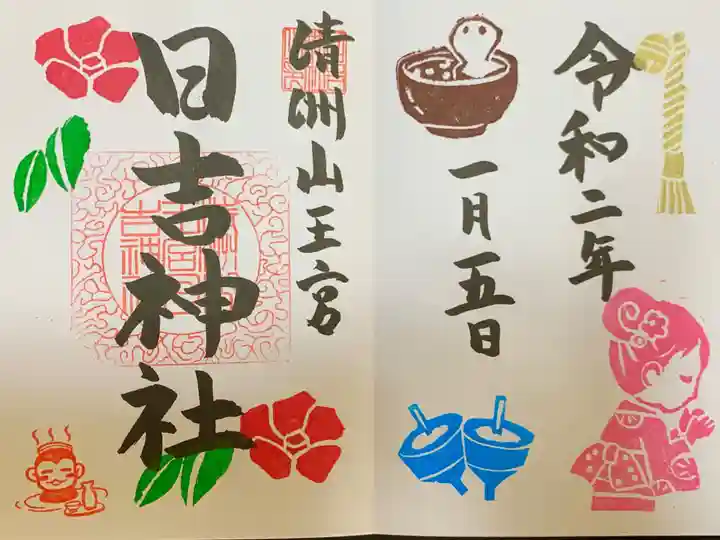 令和二年
一月五日
清洲山王宮
日吉神社